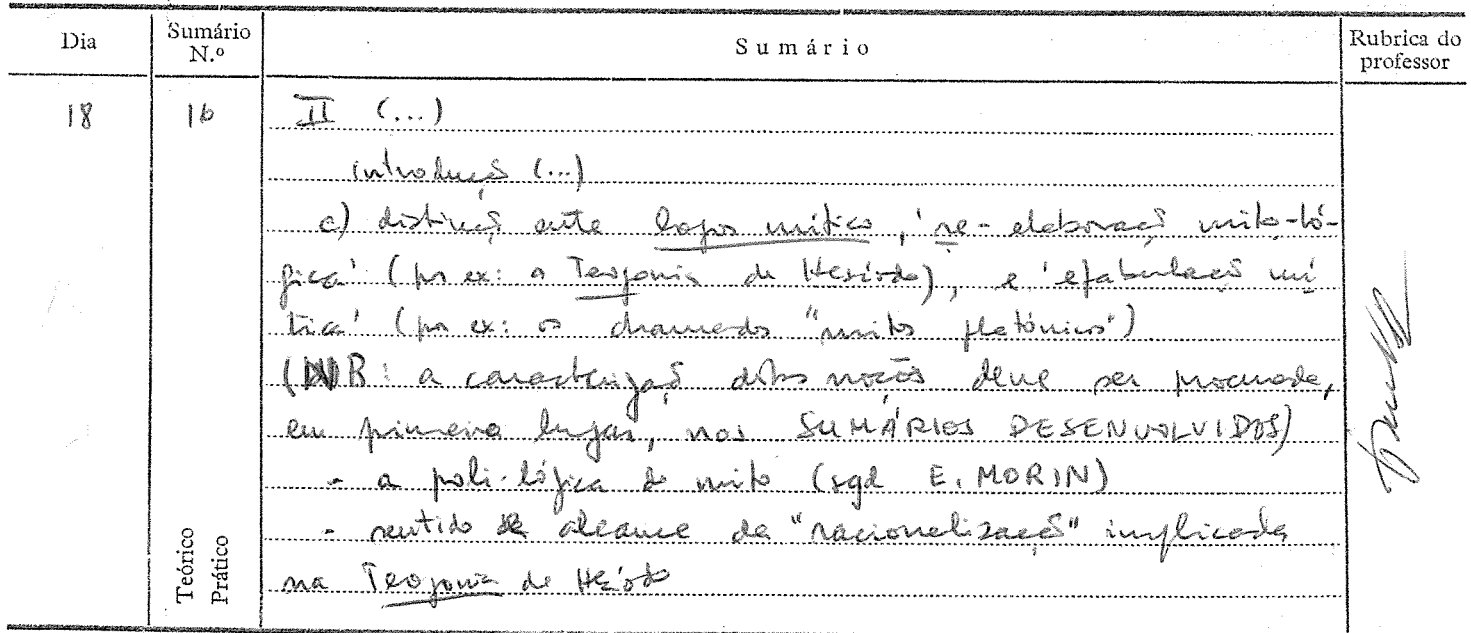 Dia
Sumário N.º
Sumário
Rubrica do professor
18
16
II (...)
introduçã (...)
c) distinçã entre logos mítico, 're-elaboraçã mito-ló-
gica' (por ex: a Teogonia de Hesíodo), e 'efabulaçã mí
tica' (por ex: os chamados "mitos platónicos")
(NB: a caracterizaçã destas noções deve ser procurada,
em primeiro lugar, nos SUMÁRIOS DESENVOLVIDOS)
- a poli-lógica do mito (sgd E. MORIN)
- sentido e alcance da "racionalizaçã" implicada
na Teogonia de Hesíodo
Teórico
Prático